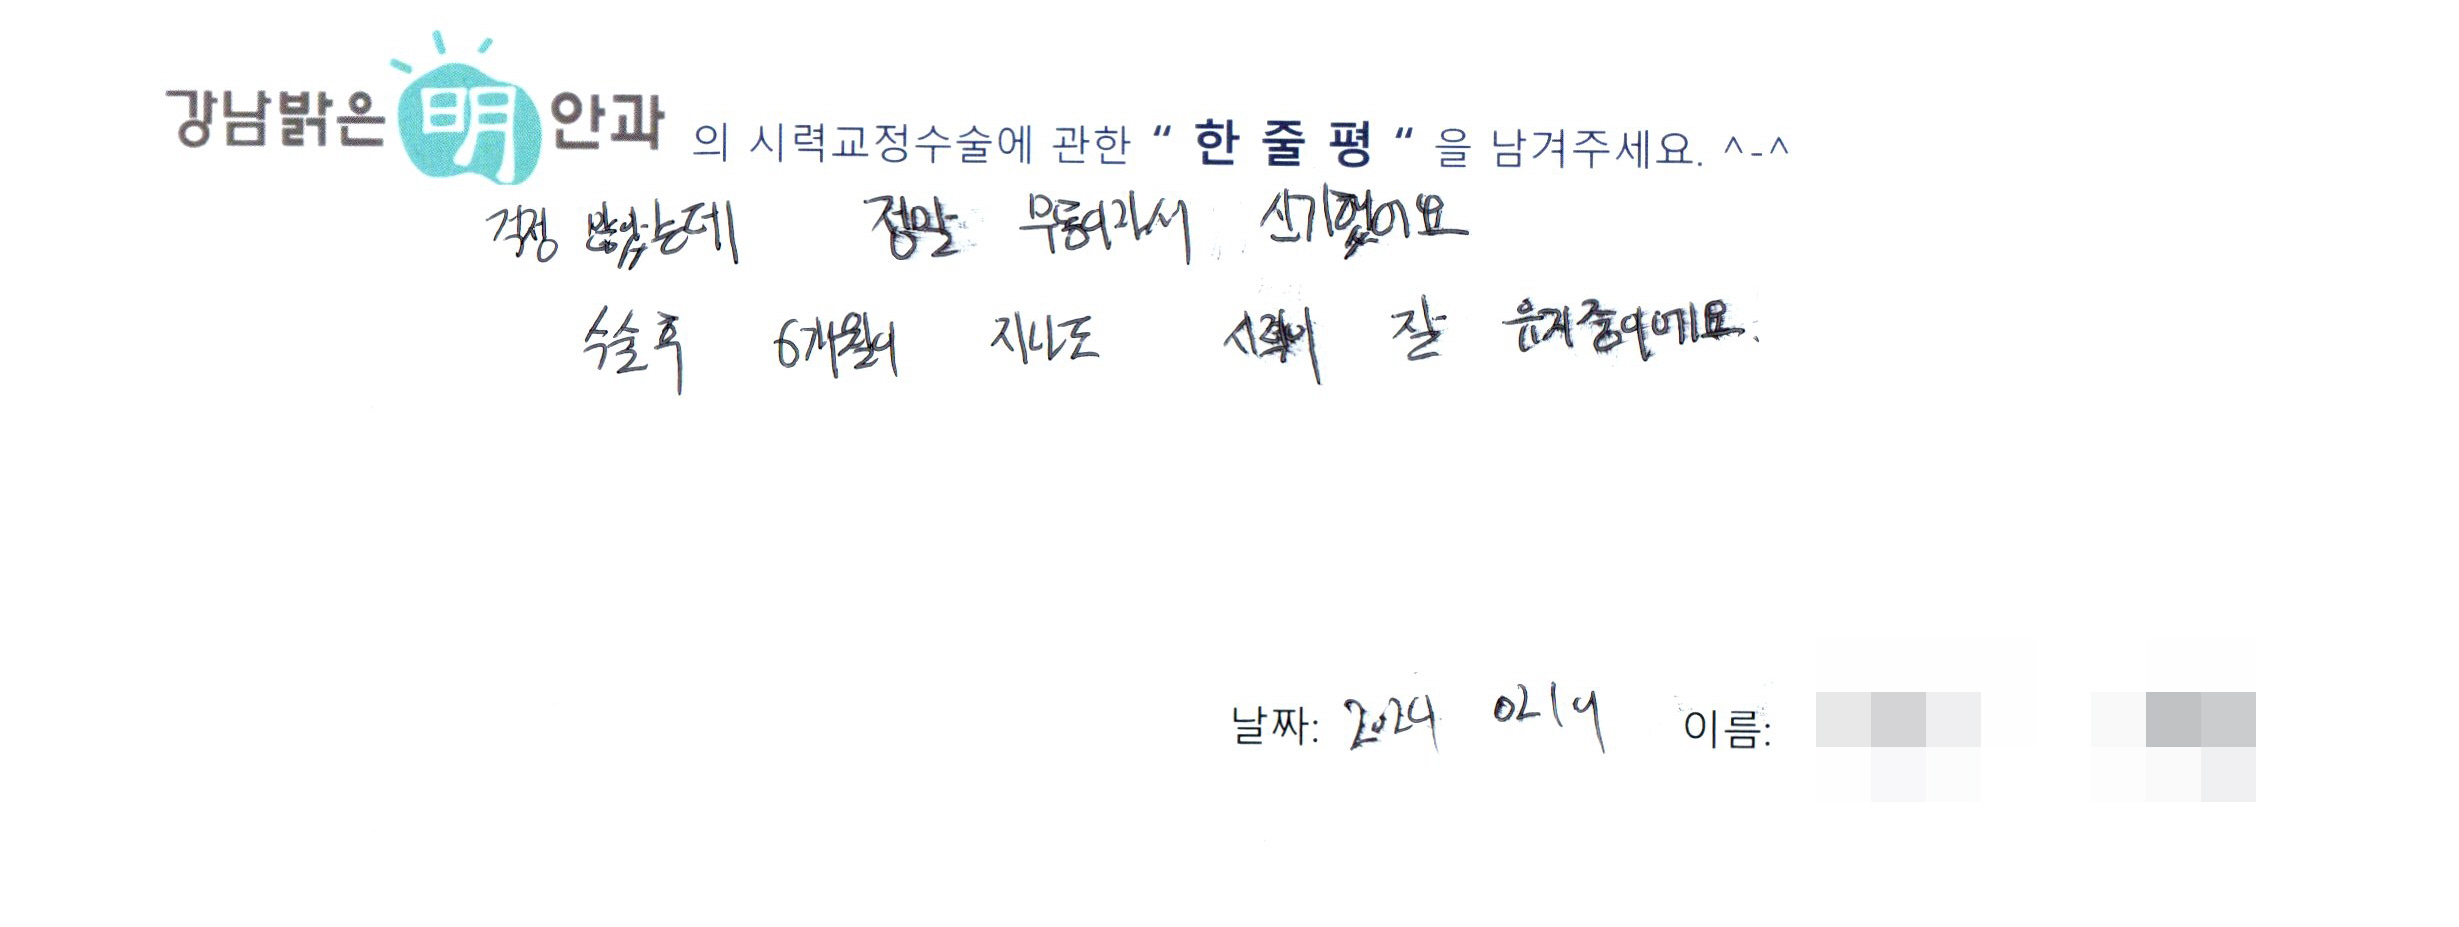 강남밝은 明 안과 의 시력교정수술에 관한 “ 한 줄 평 “ 을 남겨주세요. ^-^
걱정 많았는데 정말 무통이라서 신기했어요
수술후 6개월이 지나도 시력이 잘 유지중이에요.
날짜: 2024 0219 이름: